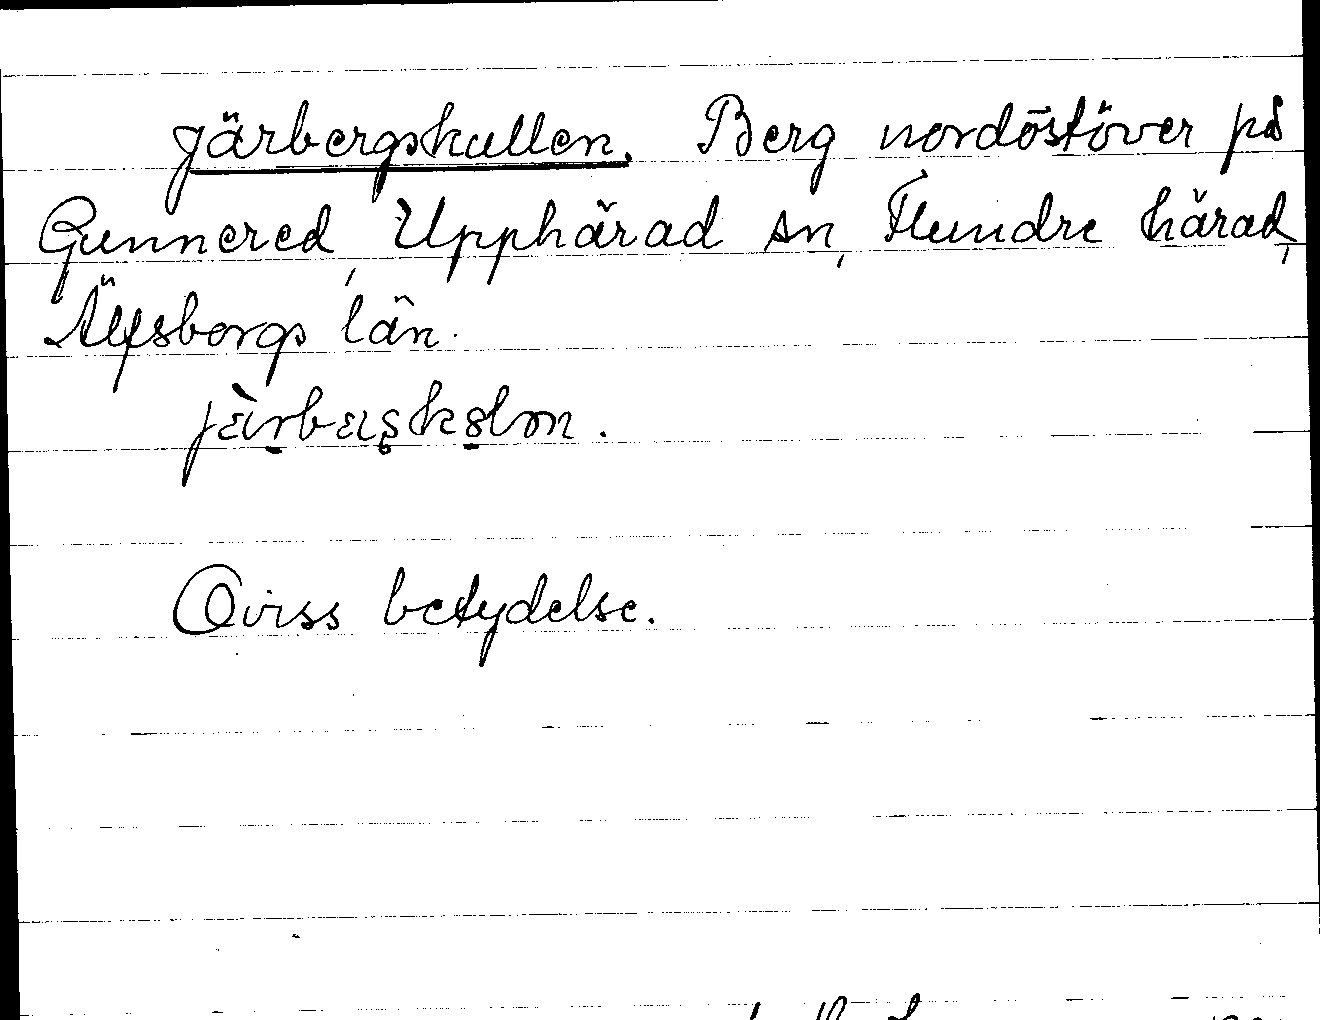 Järbergskullen. Berg nordöstöver på
Gunnered, Upphärad sn, Flundre härad,
Älfsborgs län.
Oviss betydelse.